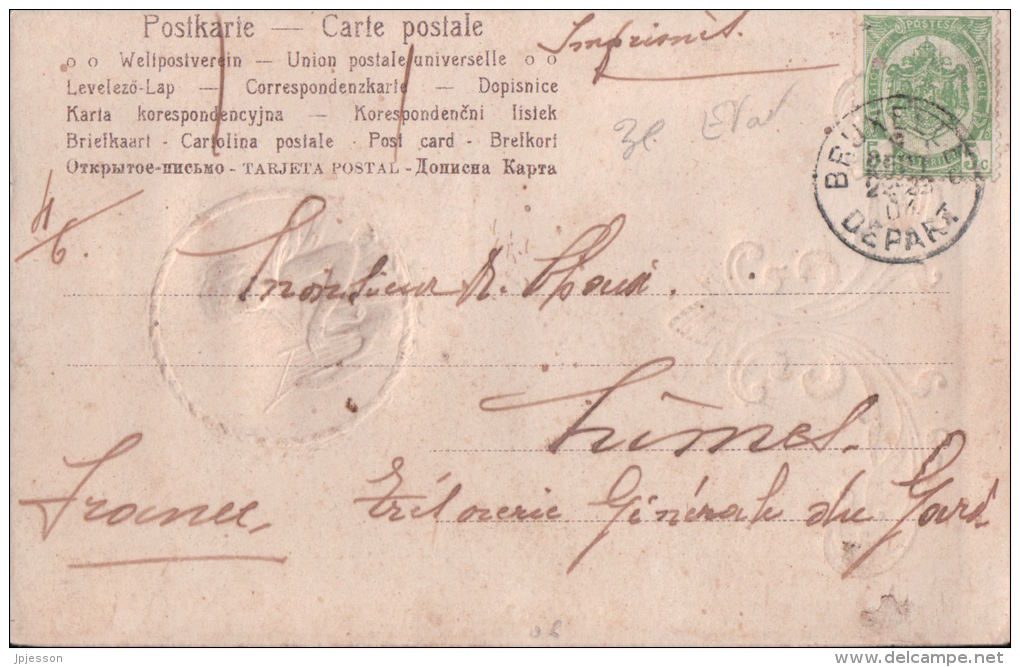 Postkarte — Carte postale
o o Weltpostverein — Union postale universelle o o
Levelező-Lap — Correspondenzkarte — Dopisnice
Karta korespondencyjna — Korespondenční lístek
Briefkaart - Cartolina postale - Post card - Brefkort
Открытое-письмо - TARJETA POSTAL - Дописна Карта
Imprimés.
POSTES
5 5c
BRUXELLES
DÉPART
Monsieur A.
Nîmes.
France
Trésorerie Générale du Gard
jpjesson
www.delcampe.net